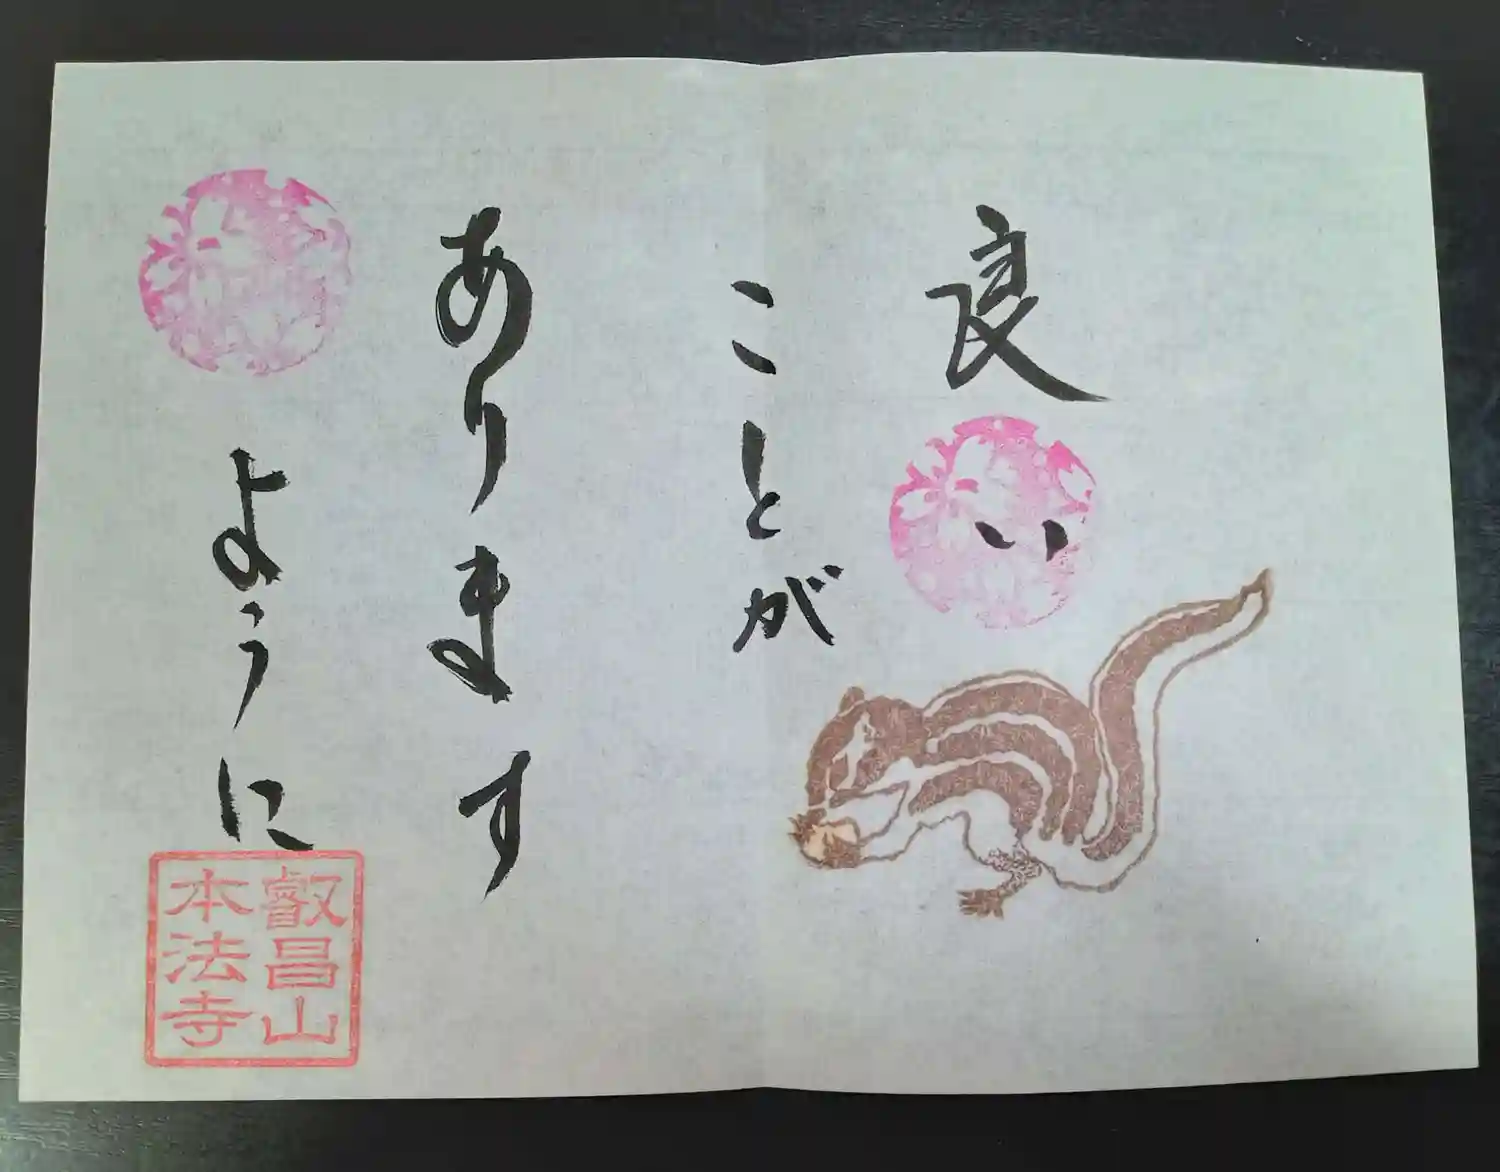 良い
ことが
あります
ように
叡昌山
本法寺